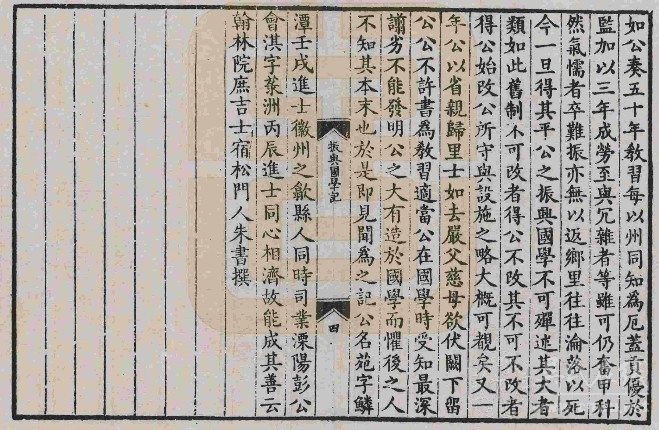 如公奏五十年教習每以州同知為厄蓋貢優於
監加以三年成勞至與冗雜者等雖可仍奮甲科
然氣懦者卒難振亦無以返鄉里往往淪落以死
今一旦得其平公之振興國學不可殫述其大者
類如此舊制不可改者得公不改其不可不改者
得公始改公所守與設施之略大概可觀矣又一
年公以省親歸里士如去嚴父慈母欲伏闕下留
公公不許書為教習適當公在國學時受知最深
譾劣不能發明公之大有造於國學而懼後之人
不知其本末也於是即見聞為之記公名苑字鱗
振興國學記
四
潭壬戌進士徽州之歙縣人同時司業溧陽彭公
會淇字菉洲丙辰進士同心相濟故能成其善云
翰林院庶吉士宿松門人朱書撰